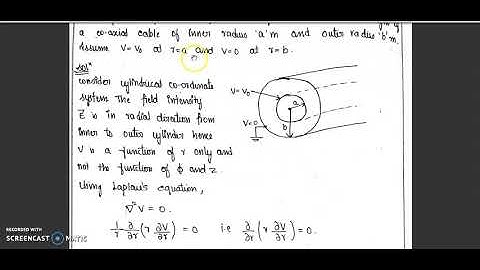 a co-axial cable of inner radius 'a' m and outer radius 'b' m.
Assume V=V₀ at r=a and V=0 at r=b.
Solⁿ
consider cylindrical co-ordinate
system. The field intensity
E is in radial direction from
inner to outer cylinder hence
V is a function of r only and
not the function of ϕ and z.
Using Laplace's equation,
∇²V = 0.
1/r ∂/∂r (r ∂V/∂r) = 0 i.e ∂/∂r (r ∂V/∂r) = 0.
V=V₀
a
V=0
b
RECORDED WITH
SCREENCAST MATIC